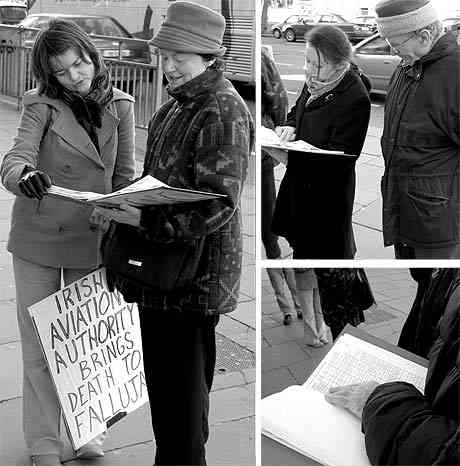 IRISH
AVIATION
AUTHORITY
BRINGS
DEATH TO
FALLUJA